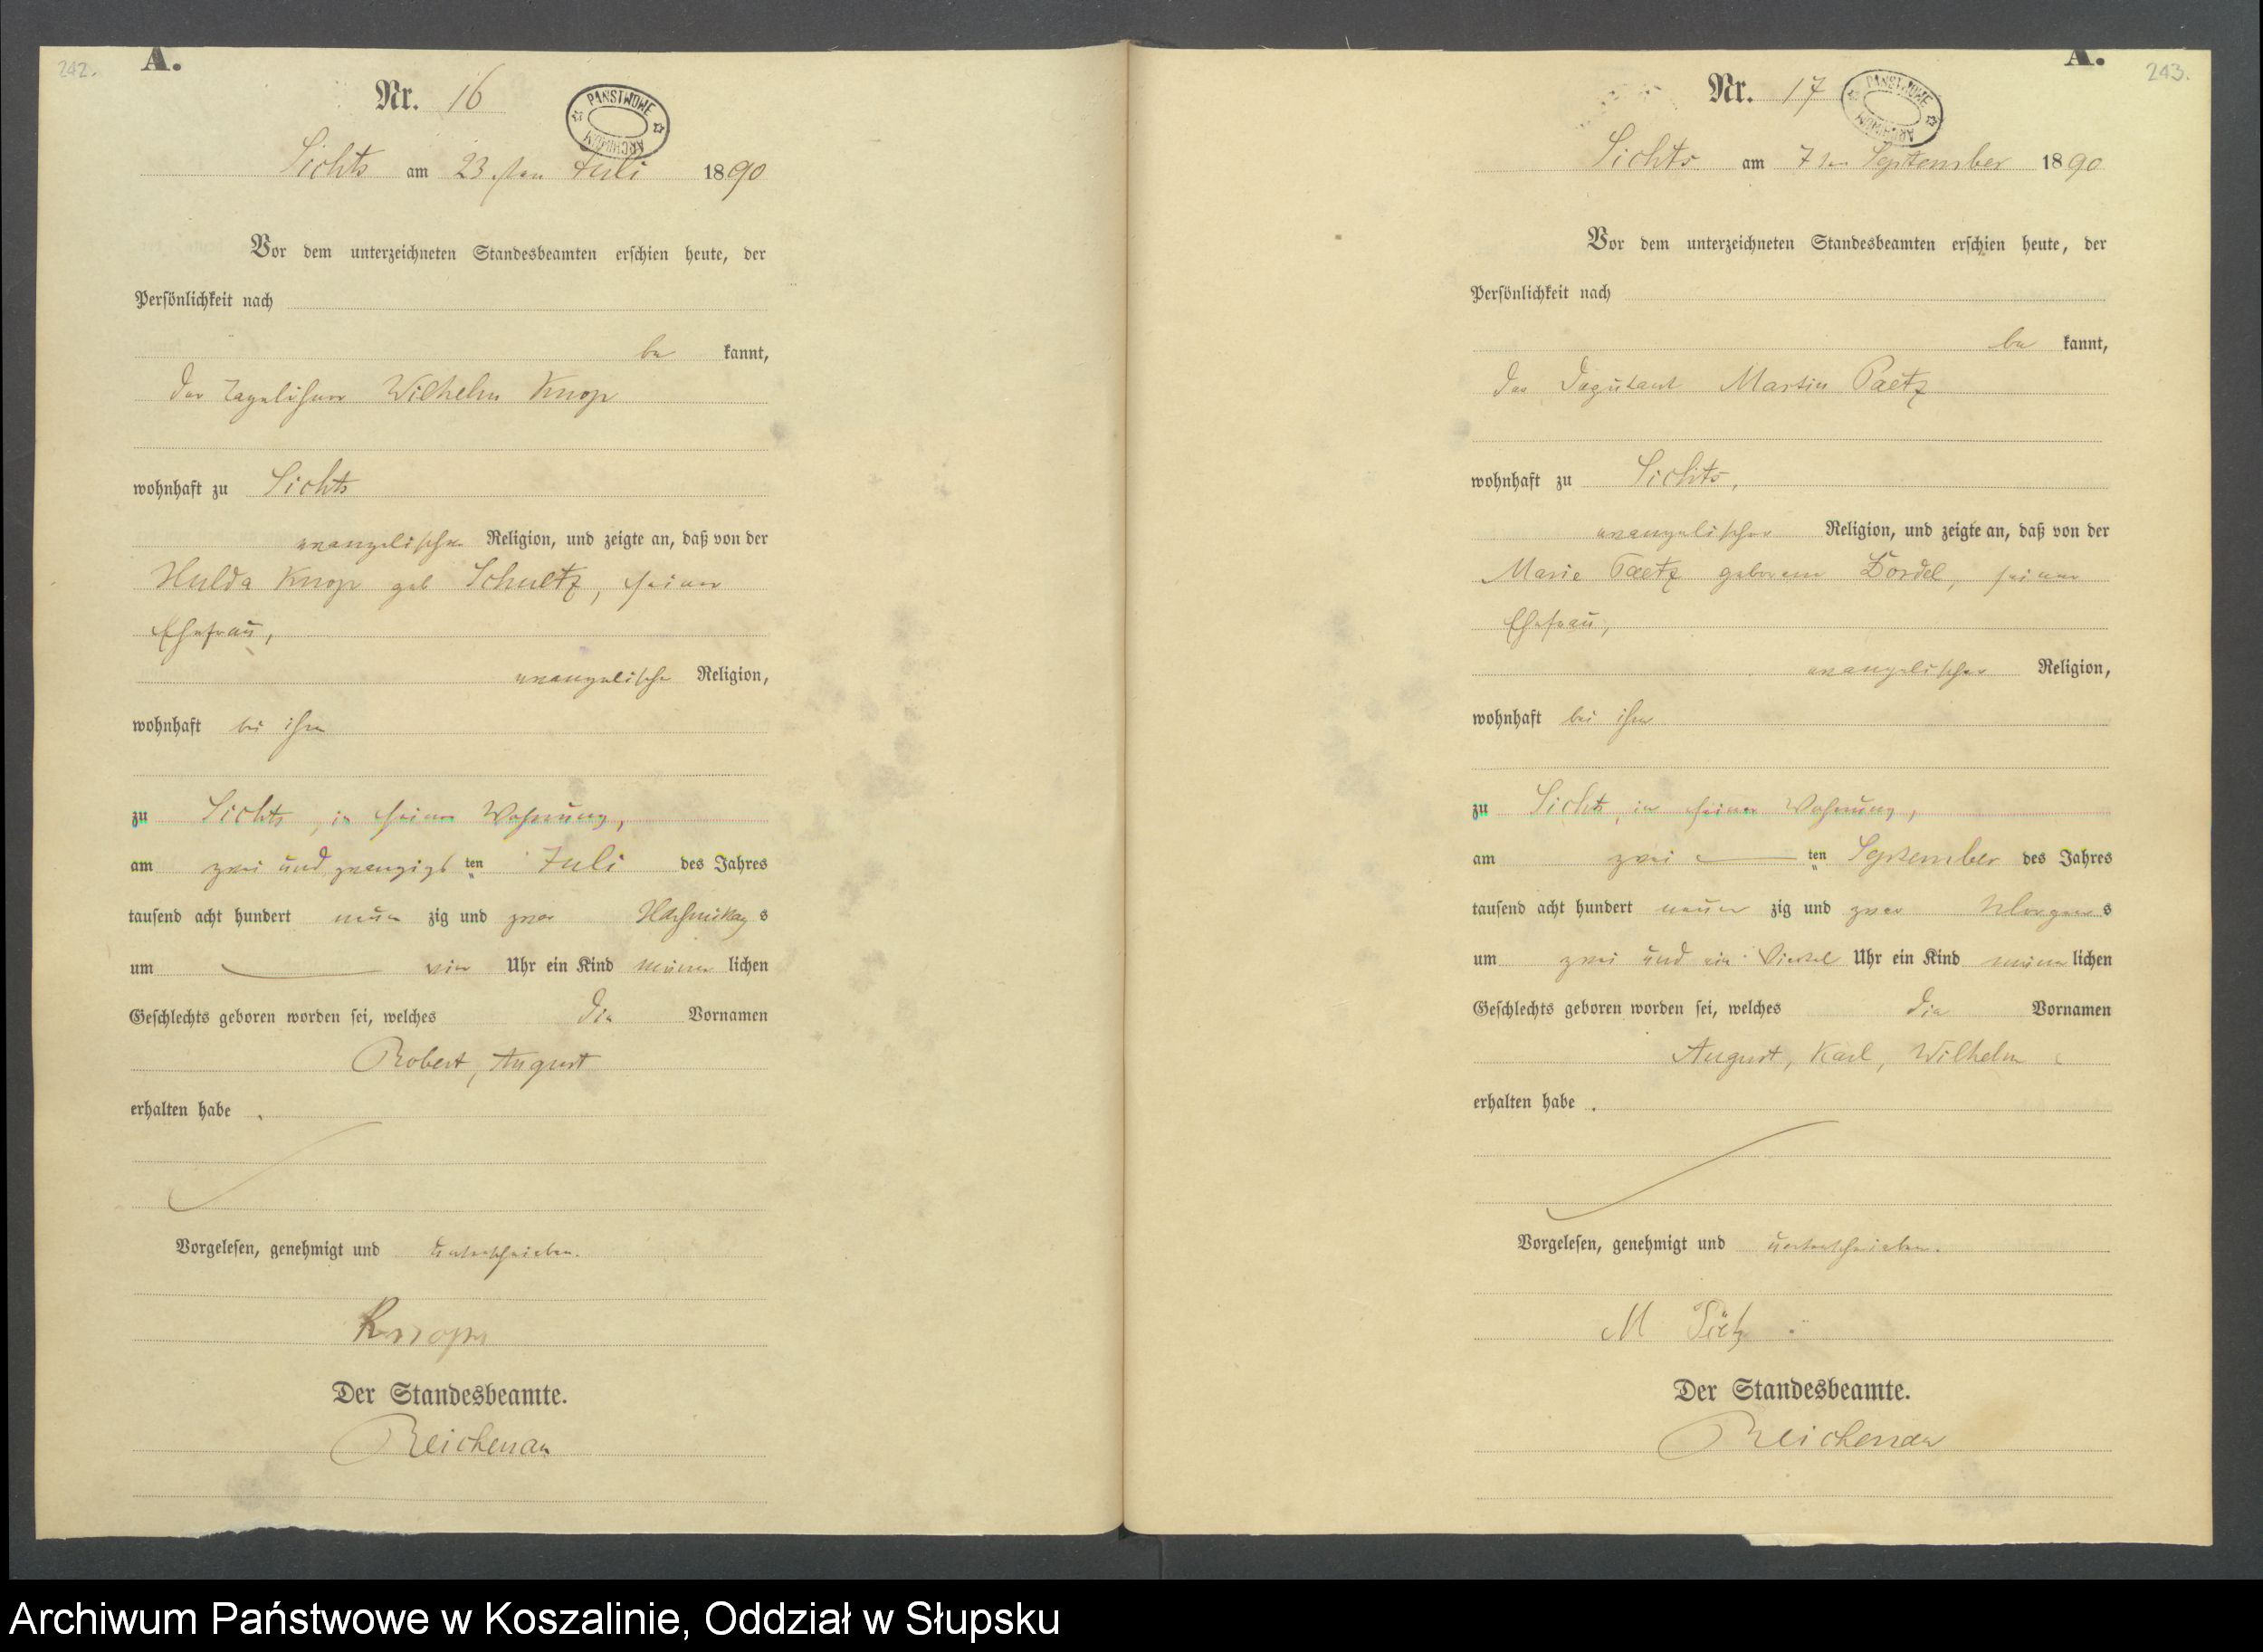 242.
A.
Nr. 16
PAŃSTWOWE ARCHIWUM
Sichts am 23. ten Juli 1890
Vor dem unterzeichneten Standesbeamten erschien heute, der
Persönlichkeit nach
be kannt,
der Tagelöhner Wilhelm Knop
wohnhaft zu Sichts
evangelischer Religion, und zeigte an, daß von der
Hulda Knop geb Schultz, seiner
Ehefrau,
evangelische Religion,
wohnhaft bei ihm
zu Sichts, in seiner Wohnung,
am zwei und zwanzigs ten Juli des Jahres
tausend acht hundert neun zig und zwar Nachmittag s
um vier Uhr ein Kind männ lichen
Geschlechts geboren worden sei, welches die Vornamen
Robert, August
erhalten habe.
Vorgelesen, genehmigt und unterschrieben.
Knop
Der Standesbeamte.
Reichenau
243.
A.
Nr. 17
PAŃSTWOWE ARCHIWUM
Sichts am 7 ten September 1890
Vor dem unterzeichneten Standesbeamten erschien heute, der
Persönlichkeit nach
be kannt,
der Deputant Martin Paetz
wohnhaft zu Sichts,
evangelischer Religion, und zeigte an, daß von der
Marie Paetz geborene Dordel, seiner
Ehefrau,
evangelischer Religion,
wohnhaft bei ihm
zu Sichts, in seiner Wohnung,
am zwei ten September des Jahres
tausend acht hundert neun zig und zwar Morgen s
um zwei und ein Viertel Uhr ein Kind männ lichen
Geschlechts geboren worden sei, welches die Vornamen
August, Karl, Wilhelm
erhalten habe.
Vorgelesen, genehmigt und unterschrieben.
M Pätz
Der Standesbeamte.
Reichenau
Archiwum Państwowe w Koszalinie, Oddział w Słupsku